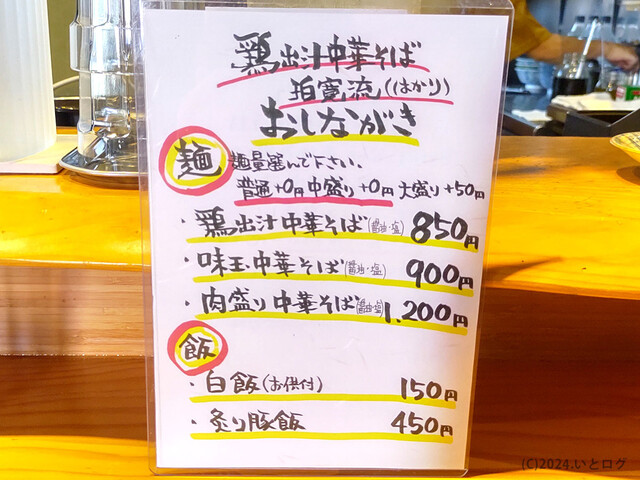 鶏出汁中華そば
拍寛流(はかり)
おしながき
麺 麺量選んで下さい。
普通+0円 中盛り+0円 大盛り+50円
・鶏出汁中華そば(醤油・塩) 850円
・味玉中華そば(醤油・塩) 900円
・肉盛り中華そば(醤油・塩) 1,200円
飯
・白飯(お供付) 150円
・炙り豚飯 450円
(C)2024.いとログ